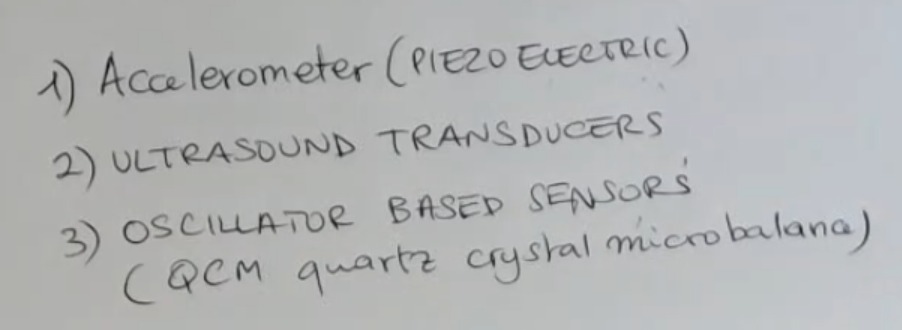 1) Accelerometer (PIEZO ELECTRIC)
2) ULTRASOUND TRANSDUCERS
3) OSCILLATOR BASED SENSORS
(QCM quartz crystal microbalance)